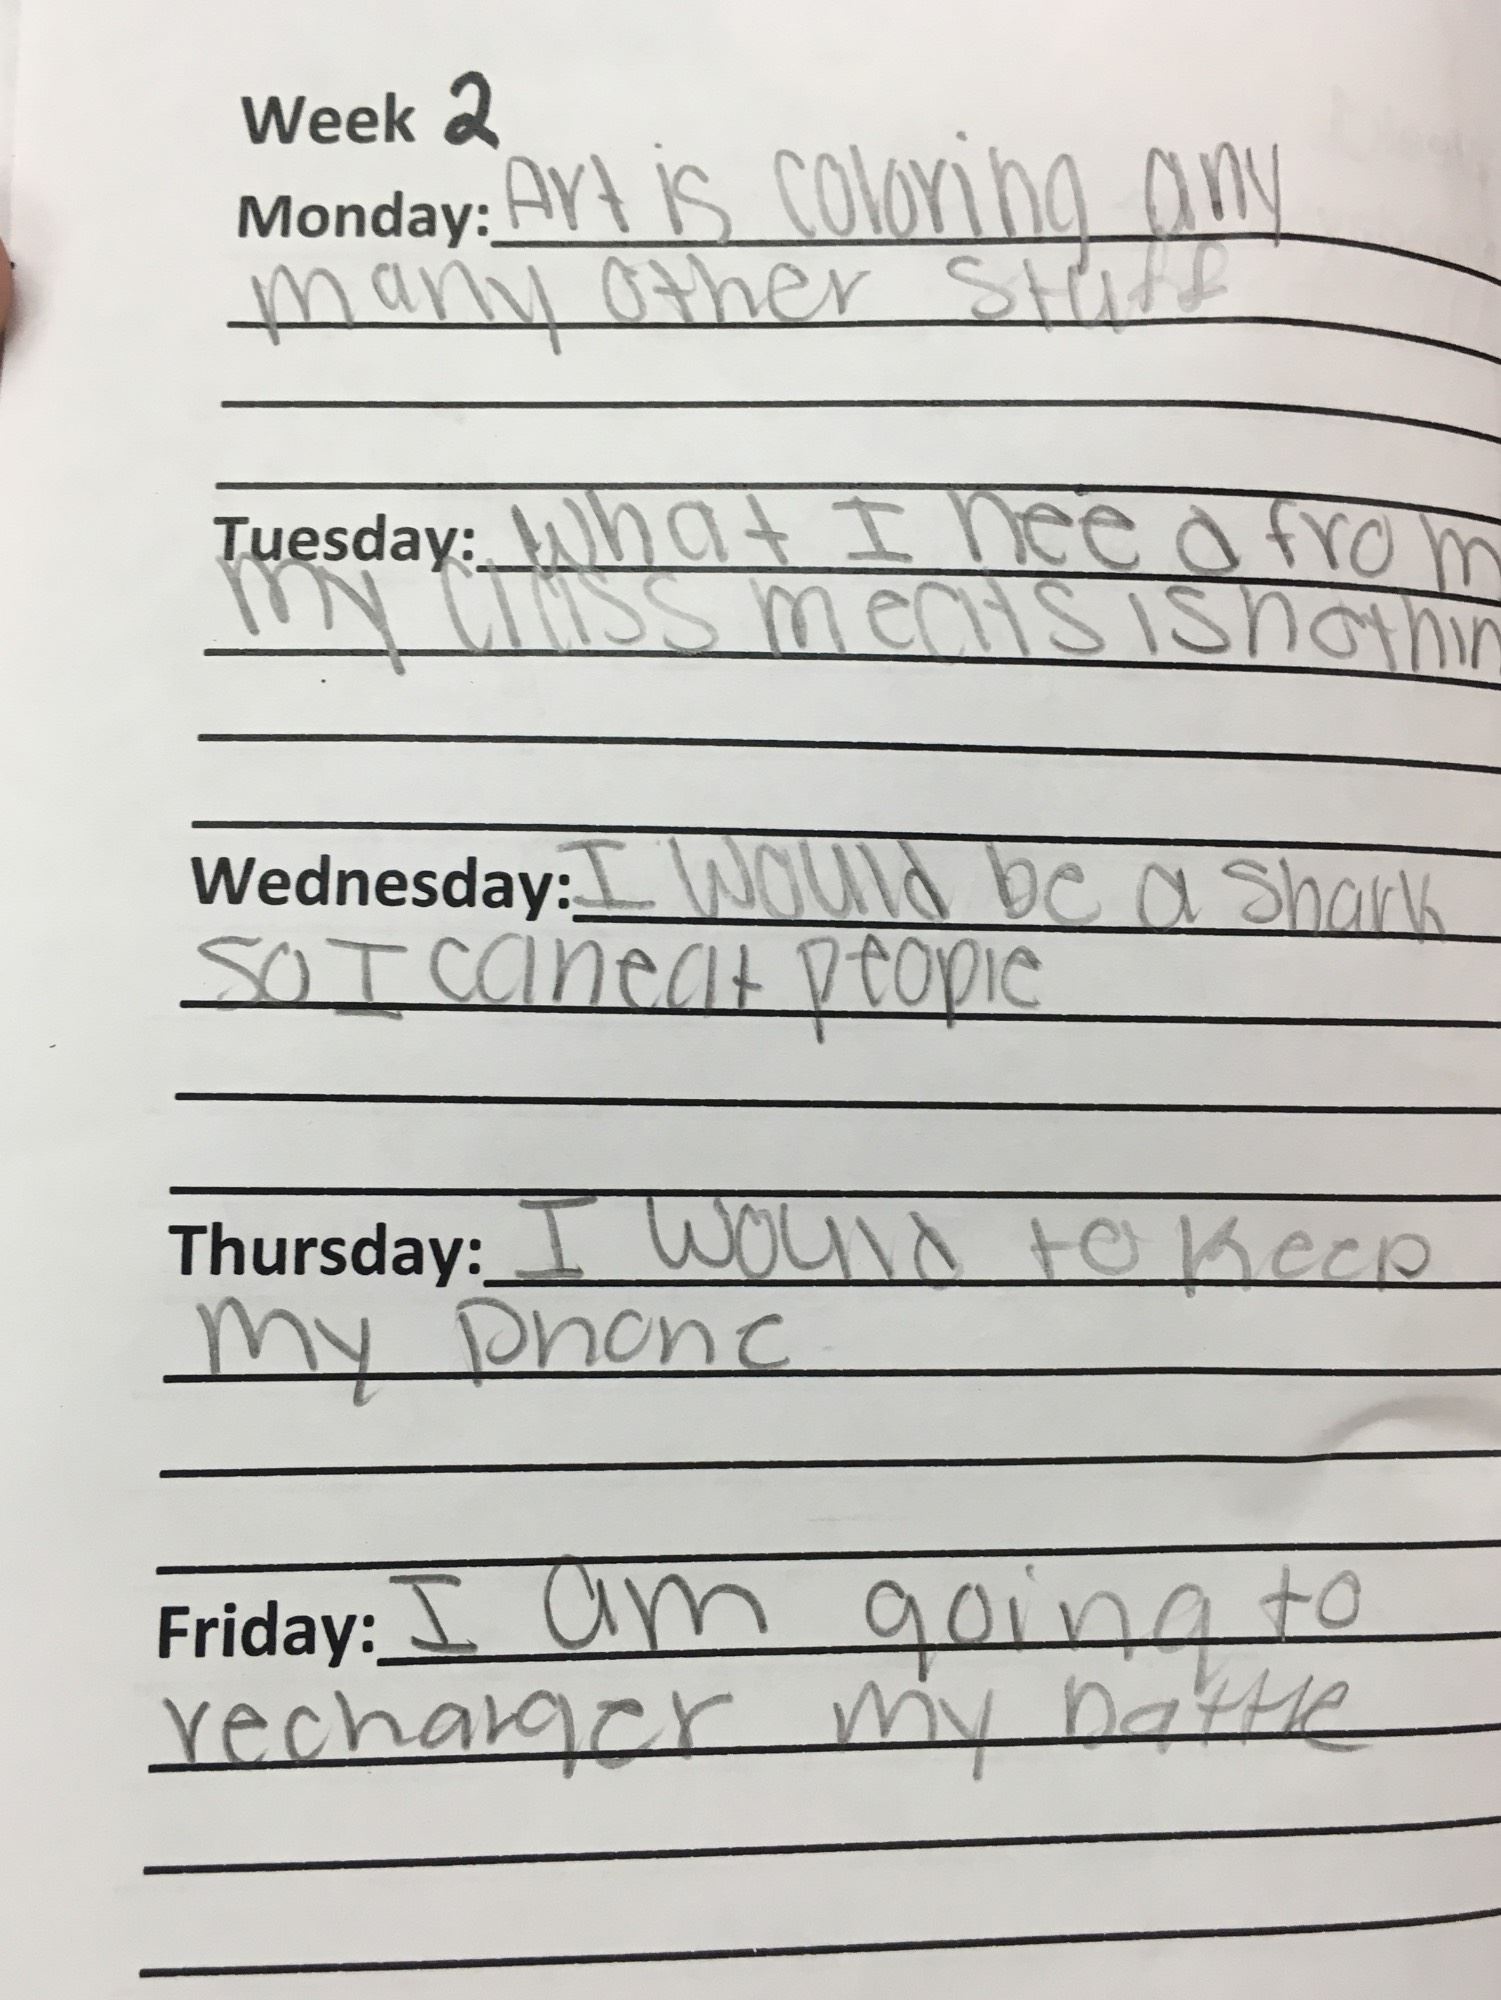 Week 2
Monday: Art is coloring any
many other stuff
Tuesday: What I need from
my class meats is nothin
Wednesday: I would be a shark
so I can eat people
Thursday: I would to keep
my phone
Friday: I am going to
recharger my battle